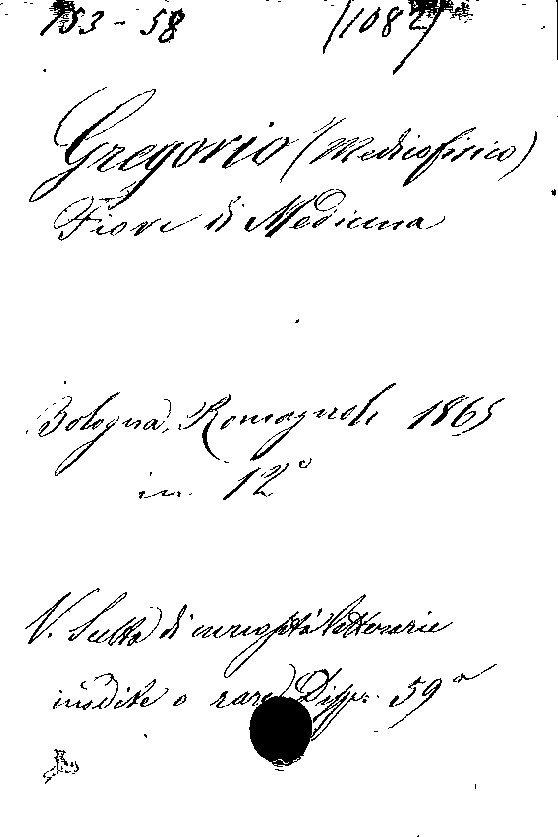 153-58 (1082)
Gregorio (Mediofisico)
Fiore di Medicina
Bologna, Romagnoli 1865
in 12°
V. Scelta di curiosità letterarie
inedite o rare Disp. 59ª